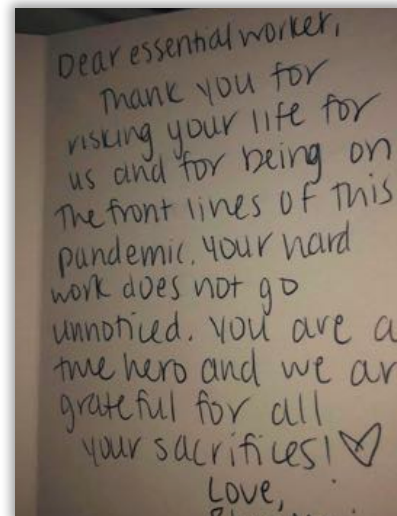 Dear essential worker,
Thank you for
risking your life for
us and for being on
the front lines of this
pandemic. Your hard
work does not go
unnoticed. You are a
true hero and we ar
grateful for all
your sacrifices! ♡
Love,